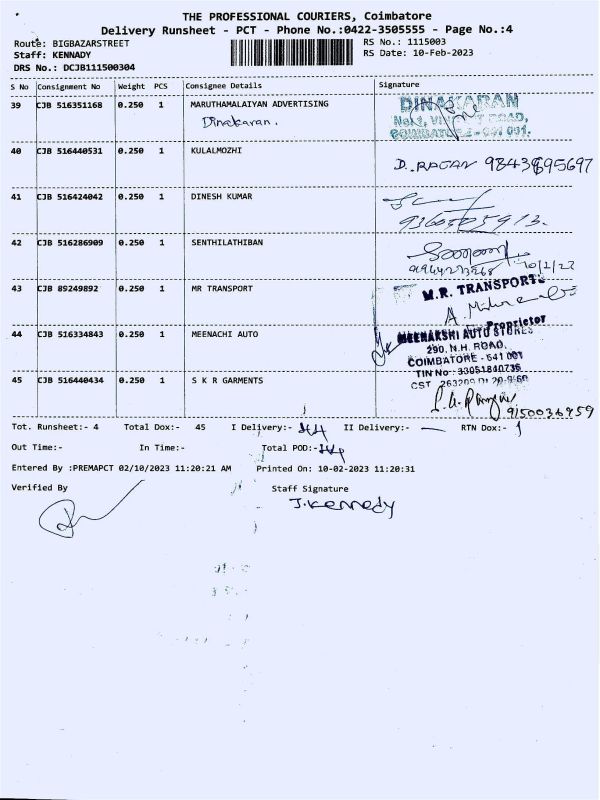 THE PROFESSIONAL COURIERS, Coimbatore
Delivery Runsheet - PCT - Phone No.:0422-3505555 - Page No.:4
Route: BIGBAZARSTREET
RS No.: 1115003
Staff: KENNADY
RS Date: 10-Feb-2023
DRS No.: DCJB111500304
S No Consignment No Weight PCS Consignee Details Signature
39 CJB 516351168 0.250 1 MARUTHAMALAIYAN ADVERTISING
Dinakaran.
DINAKARAN
ROAD,
COIMBATORE - 641 001.
40 CJB 516440531 0.250 1 KULALMOZHI
D. RAJAN
41 CJB 516424042 0.250 1 DINESH KUMAR
42 CJB 516286909 0.250 1 SENTHILATHIBAN
43 CJB 89249892 0.250 1 MR TRANSPORT
M.R. TRANSPORTS
Proprietor
44 CJB 516334843 0.250 1 MEENACHI AUTO
MEENAKSHI AUTO STORES
290, N.H. ROAD,
COIMBATORE - 641 001
TIN No : 33051840736
CST
45 CJB 516440434 0.250 1 S K R GARMENTS
9150036959
Tot. Runsheet:- 4 Total Dox:- 45 I Delivery:- 44 II Delivery:- — RTN Dox:- 1
Out Time:- In Time:- Total POD:- 44
Entered By :PREMAPCT 02/10/2023 11:20:21 AM Printed On: 10-02-2023 11:20:31
Verified By Staff Signature
J. Kennedy